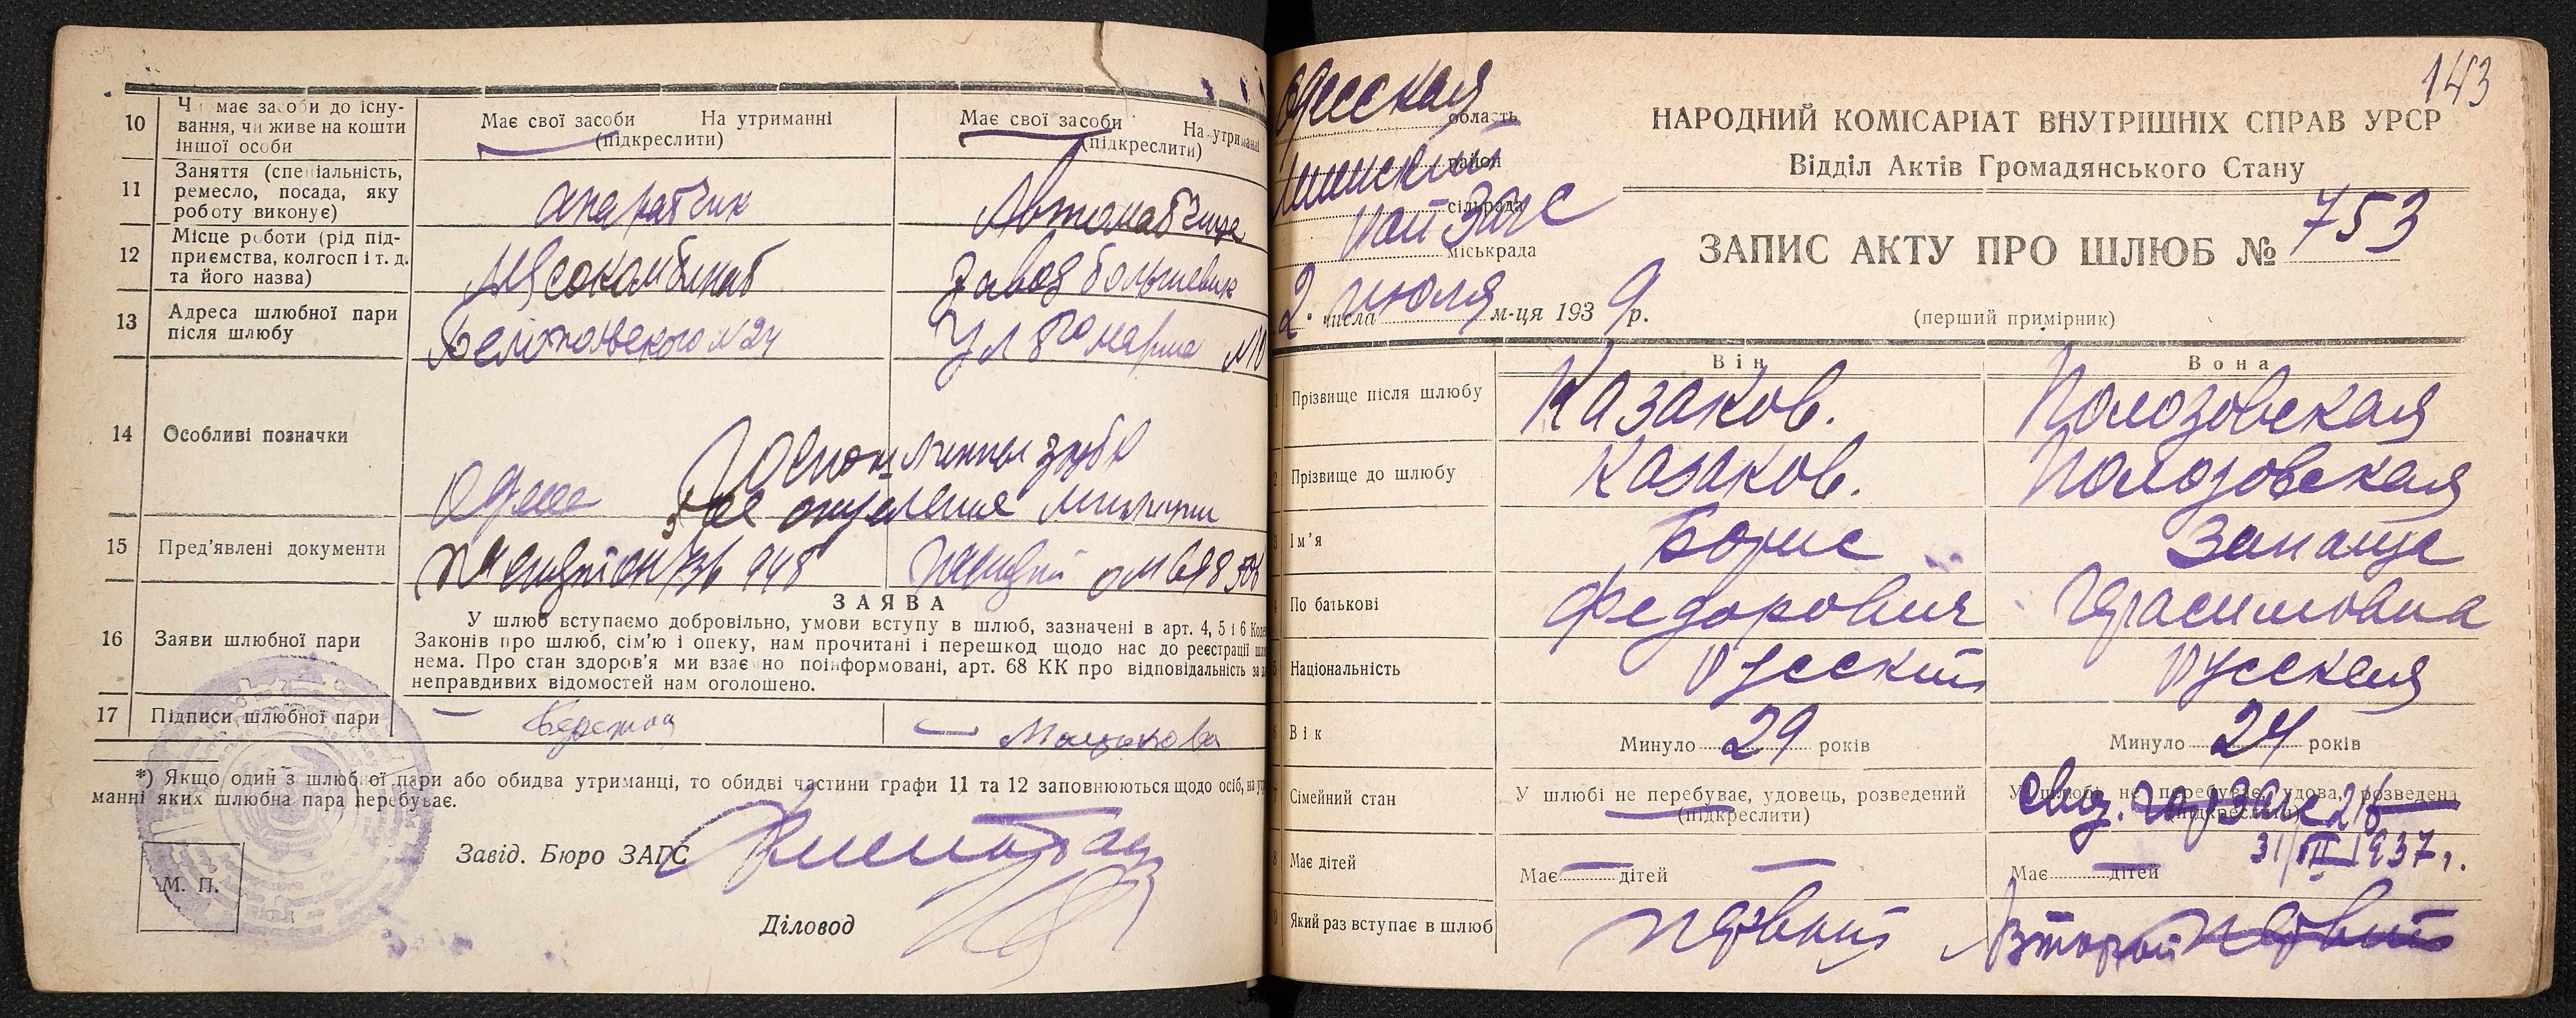 10
Чи має засоби до існу-
вання, чи живе на кошти
іншої особи
Має свої засоби На утриманні
(підкреслити)
Має свої засоби На утриманні
(підкреслити)
11
Заняття (спеціальність,
ремесло, посада, яку
роботу виконує)
апаратчик
Автоматчица
12
Місце роботи (рід під-
приємства, колгосп і т. д.
та його назва)
Мясокомбинат
Завод большевик
13
Адреса шлюбної пари
після шлюбу
№ 24
Ул 8го марта №10
14
Особливі позначки
15
Пред'явлені документи
отделения милиции
16
Заяви шлюбної пари
ЗАЯВА
У шлюб вступаємо добровільно, умови вступу в шлюб, зазначені в арт. 4, 5 і 6
Законів про шлюб, сім'ю і опеку, нам прочитані і перешкод щодо нас до реєстрації
нема. Про стан здоров'я ми взаємно поінформовані, арт. 68 КК про відповідальність за
неправдивих відомостей нам оголошено.
17
Підписи шлюбної пари
*) Якщо один з шлюбної пари або обидва утриманці, то обидві частини графи 11 та 12 заповнюються щодо осіб, на
манні яких шлюбна пара перебуває.
Завід. Бюро ЗАГС
М. П.
Діловод
143
Одесская
область
район
сільрада
рай Загс
міськрада
2. числа июля м-ця 1939 р.
НАРОДНИЙ КОМІСАРІАТ ВНУТРІШНІХ СПРАВ УРСР
Відділ Актів Громадянського Стану
ЗАПИС АКТУ ПРО ШЛЮБ № 753
(перший примірник)
Він
Вона
1 Прізвище після шлюбу Казаков. Полозовская
2 Прізвище до шлюбу Казаков. Полозовская
3 Ім'я Борис Зинаида
4 По батькові Федорович Герасимовна
5 Національність Русский Русская
6 Вік Минуло 29 років Минуло 24 років
7 Сімейний стан
У шлюбі не перебуває, удовець, розведений
(підкреслити)
У шлюбі не перебуває, удова, розведена
(підкреслити)
31/III 1937 г.
8 Має дітей Має — дітей — Має — дітей
9 Який раз вступає в шлюб первый Второй первый